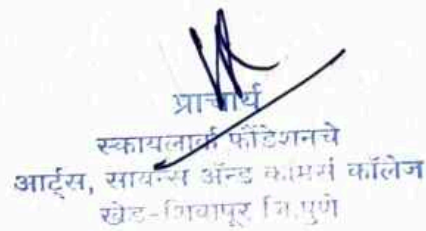 प्राचार्य
स्कायलार्क फौंडेशनचे
आर्ट्स, सायन्स ॲन्ड कामर्स कॉलेज
खेड-शिवापूर जि.पुणे